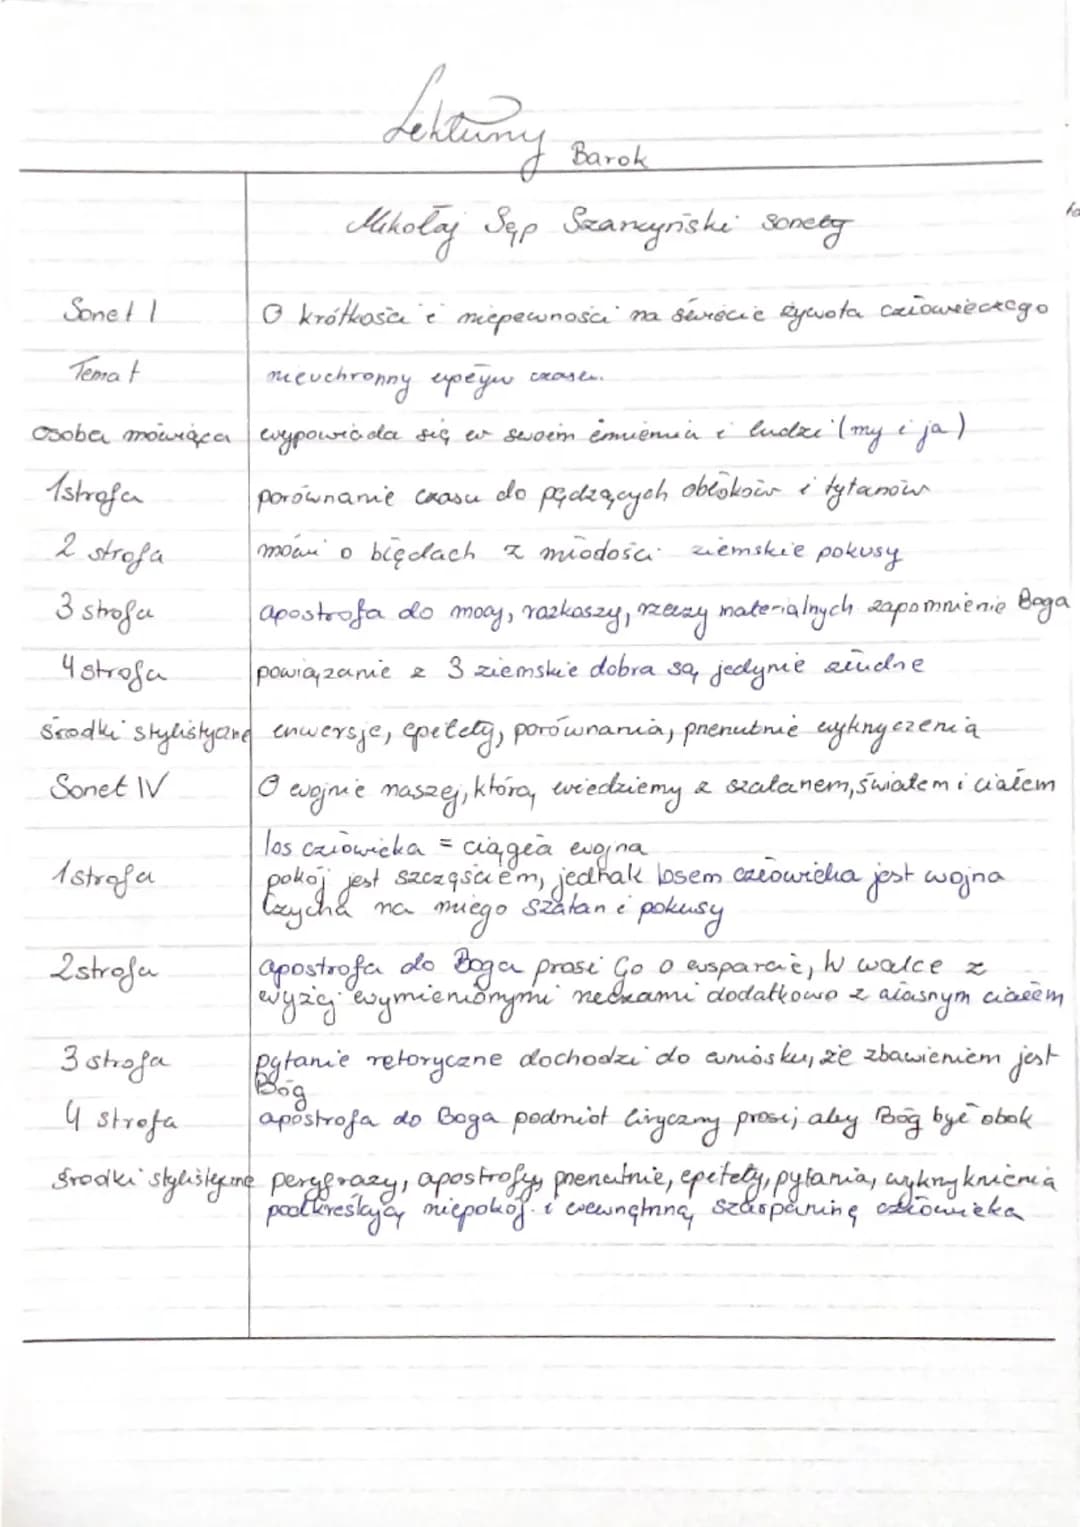 Lektury Barok
Mikołaj Sęp Szarzyński sonety
Sonet I O krótkości i niepewności na świecie żywota człowieczego
Temat nieuchronny upływ czasu.
osoba mówiąca wypowiada się w swoim imieniu i ludzi (my i ja)
1 strofa porównanie czasu do pędzących obłoków i tytanów
2 strofa mówi o błędach z młodości ziemskie pokusy
3 strofa apostrofa do mocy, rozkoszy, rzeczy materialnych zapomnienie Boga
4 strofa powiązanie z 3 ziemskie dobra są jedynie złudne
środki stylistyczne inwersje, epitety, porównania, przerzutnie wykrzyczenia
Sonet IV O wojnie naszej, którą wiedziemy z szatanem, światem i ciałem
los człowieka = ciągła wojna
1 strofa pokój jest szczęściem, jednak losem człowieka jest wojna
Czycha na niego szatan i pokusy
2 strofa apostrofa do Boga prosi Go o wsparcie, w walce z
wyżej wymienionymi rzeczami dodatkowo z własnym ciałem
3 strofa pytanie retoryczne dochodzi do wniosku, że zbawieniem jest
Bóg
4 strofa apostrofa do Boga podmiot liryczny prosi, aby Bóg był obok
środki stylistyczne peryfrazy, apostrofy, przerzutnie, epitety, pytania, wykrzyknienia
podkreślają niepokój i wewnętrzną szarpaninę człowieka